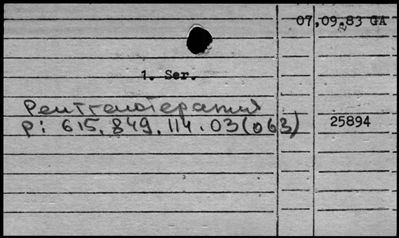 07,09.83 GA
1. Ser.
Рентгенотерапия
p: 615.849.114.03(063)
25894